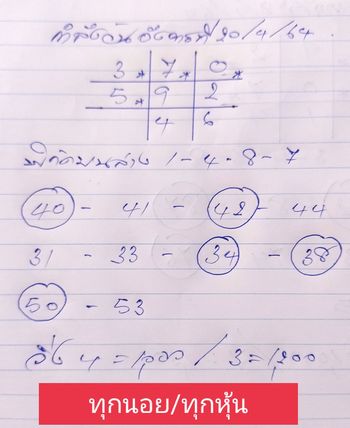 กำลังวันอังคารที่ 20/4/64
3.* 7.* 0.*
5.* 9 2
4 6
บนล่าง 1-4-8-7
40 - 41 - 42 - 44
31 - 33 - 34 - 38
50 - 53
วิ่ง 4 = / 3 =
ทุกนอย/ทุกหุ้น